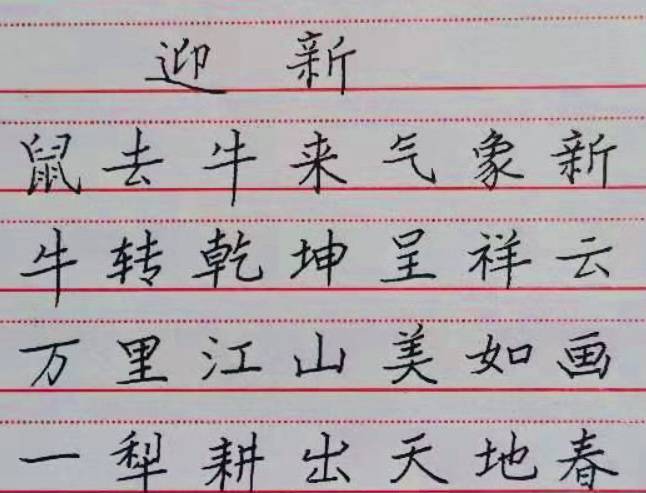 迎新
鼠去牛来气象新
牛转乾坤呈祥云
万里江山美如画
一犁耕出天地春